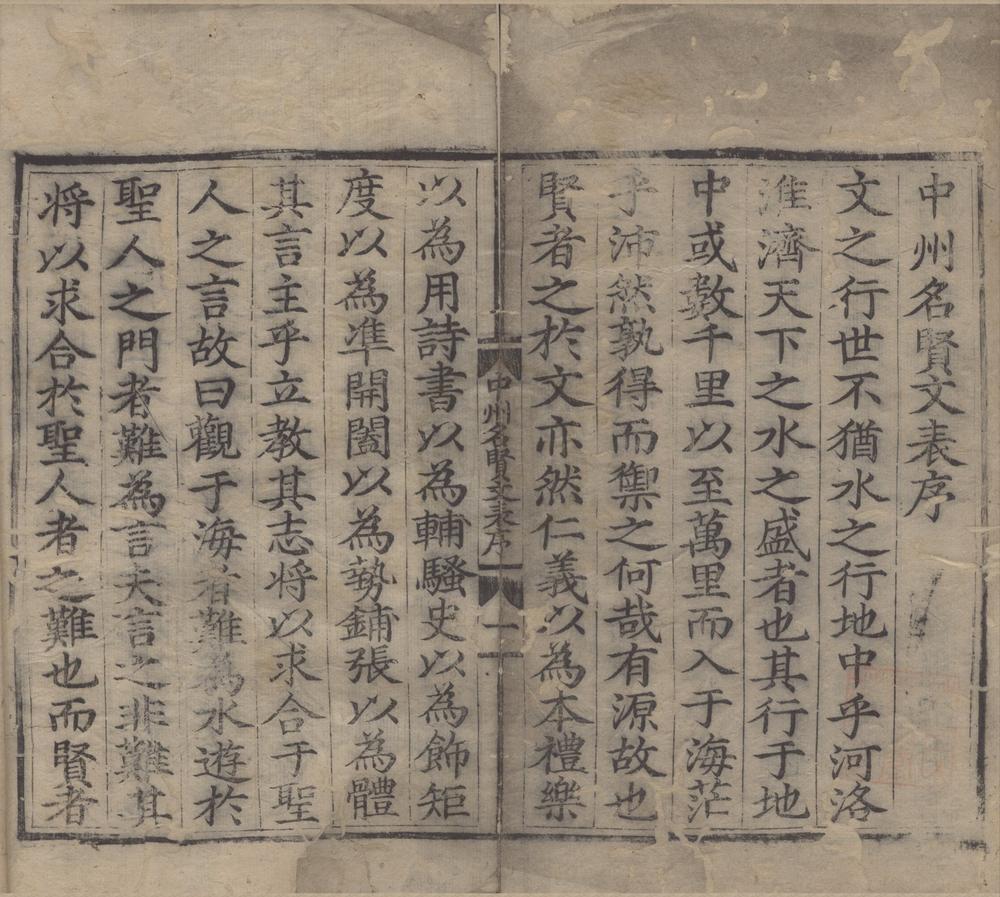 中州名賢文表序
文之行世不猶水之行地中乎河洛
淮濟天下之水之盛者也其行于地
中或數千里以至萬里而入于海茫
乎沛然孰得而禦之何哉有源故也
賢者之於文亦然仁義以為本禮樂
中州名賢文表序
一
以為用詩書以為輔騷史以為飾矩
度以為準開闔以為勢鋪張以為體
其言主乎立教其志将以求合于聖
人之言故曰觀于海者難為水遊於
聖人之門者難為言夫言之非難其
将以求合於聖人者之難也而賢者